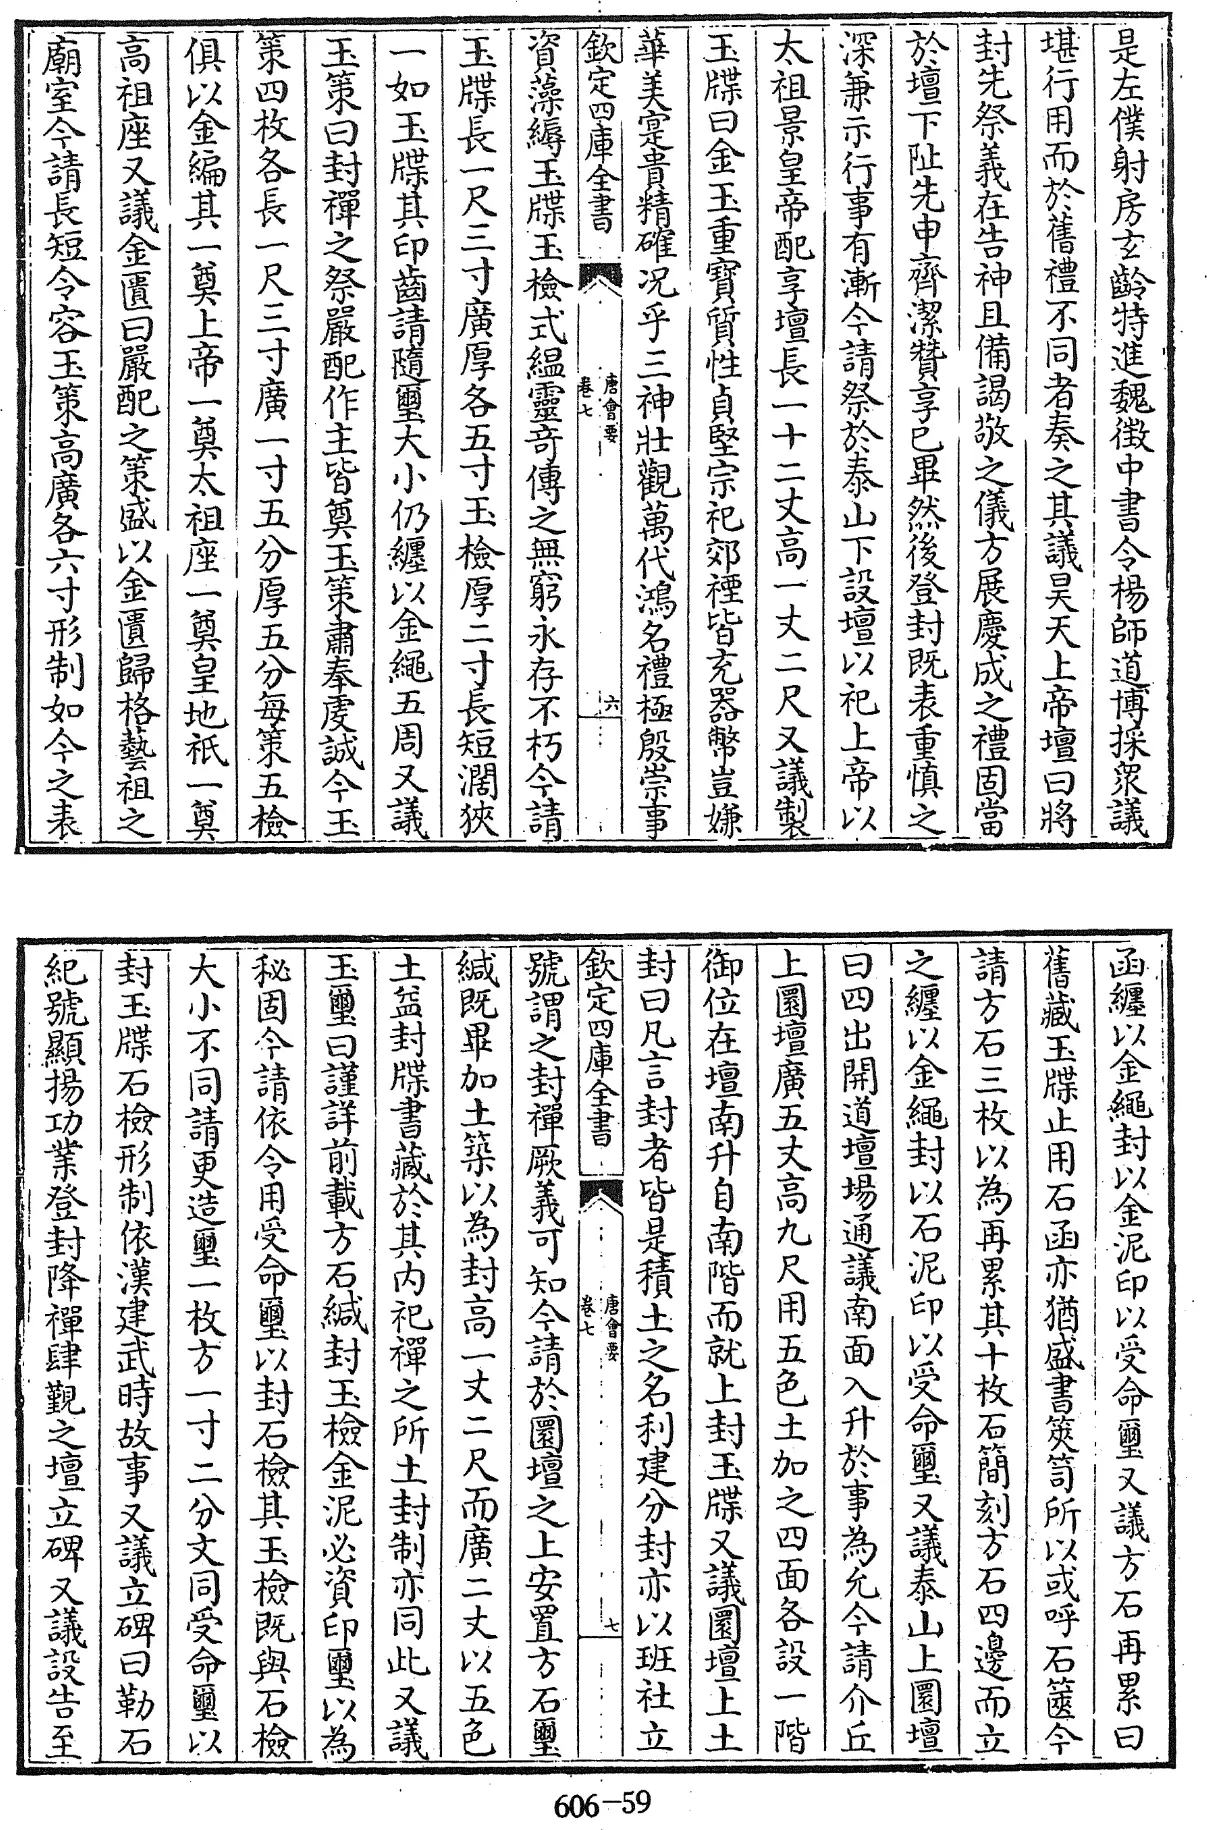 是左僕射房玄齡特進魏徴中書令楊師道博採衆議
堪行用而於舊禮不同者奏之其議昊天上帝壇曰將
封先祭義在告神且備謁敬之儀方展慶成之禮固當
於壇下阯先申齊潔贊享已畢然後登封既表重慎之
深兼示行事有漸今請祭於泰山下設壇以祀上帝以
太祖景皇帝配享壇長一十二丈高一丈二尺又議製
玉牒曰金玉重寶質性貞堅宗祀郊禋皆充器幣豈嫌
華美寔貴精確况乎三神壯觀萬代鴻名禮極殷崇事
欽定四庫全書
唐會要
卷七
六
資藻縟玉牒玉檢式緼靈竒傳之無窮永存不朽今請
玉牒長一尺三寸廣厚各五寸玉檢厚二寸長短濶狹
一如玉牒其印齒請隨璽大小仍纏以金繩五周又議
玉策曰封禪之祭嚴配作主皆奠玉策肅奉䖍誠今玉
策四枚各長一尺三寸廣一寸五分厚五分每策五檢
俱以金編其一奠上帝一奠太祖座一奠皇地祇一奠
高祖座又議金匱曰嚴配之策盛以金匱歸格藝祖之
廟室今請長短令容玉策高廣各六寸形制如今之表
函纏以金繩封以金泥印以受命璽又議方石再累曰
舊藏玉牒止用石函亦猶盛書篋笥所以或呼石篋今
請方石三枚以為再累其十枚石簡刻方石四邊而立
之纏以金繩封以石泥印以受命璽又議泰山上圜壇
曰四出開道壇場通議南面入升於事為允今請介丘
上圜壇廣五丈高九尺用五色土加之四面各設一階
御位在壇南升自南階而就上封玉牒又議圜壇上土
封曰凡言封者皆是積土之名利建分封亦以班社立
欽定四庫全書
唐會要
卷七
七
號謂之封禪厥義可知今請於圜壇之上安置方石璽
緘既畢加土築以為封高一丈二尺而廣二丈以五色
土益封牒書藏於其内祀禪之所土封制亦同此又議
玉璽曰謹詳前載方石緘封玉檢金泥必資印璽以為
秘固今請依令用受命璽以封石檢其玉檢既與石檢
大小不同請更造璽一枚方一寸二分文同受命璽以
封玉牒石檢形制依漢建武時故事又議立碑曰勒石
紀號顯揚功業登封降禪肆覲之壇立碑又議設告至
606-59